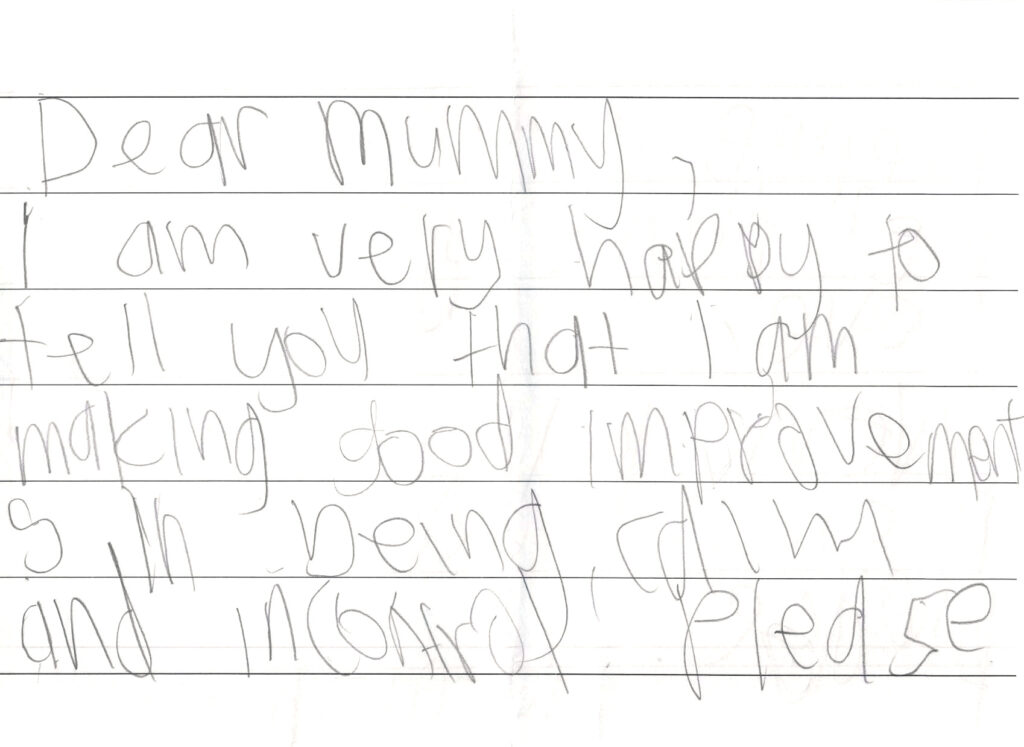 Dear Mummy,
I am very happy to
tell you that I am
making good improvement
s in being calm
and incontrol. please